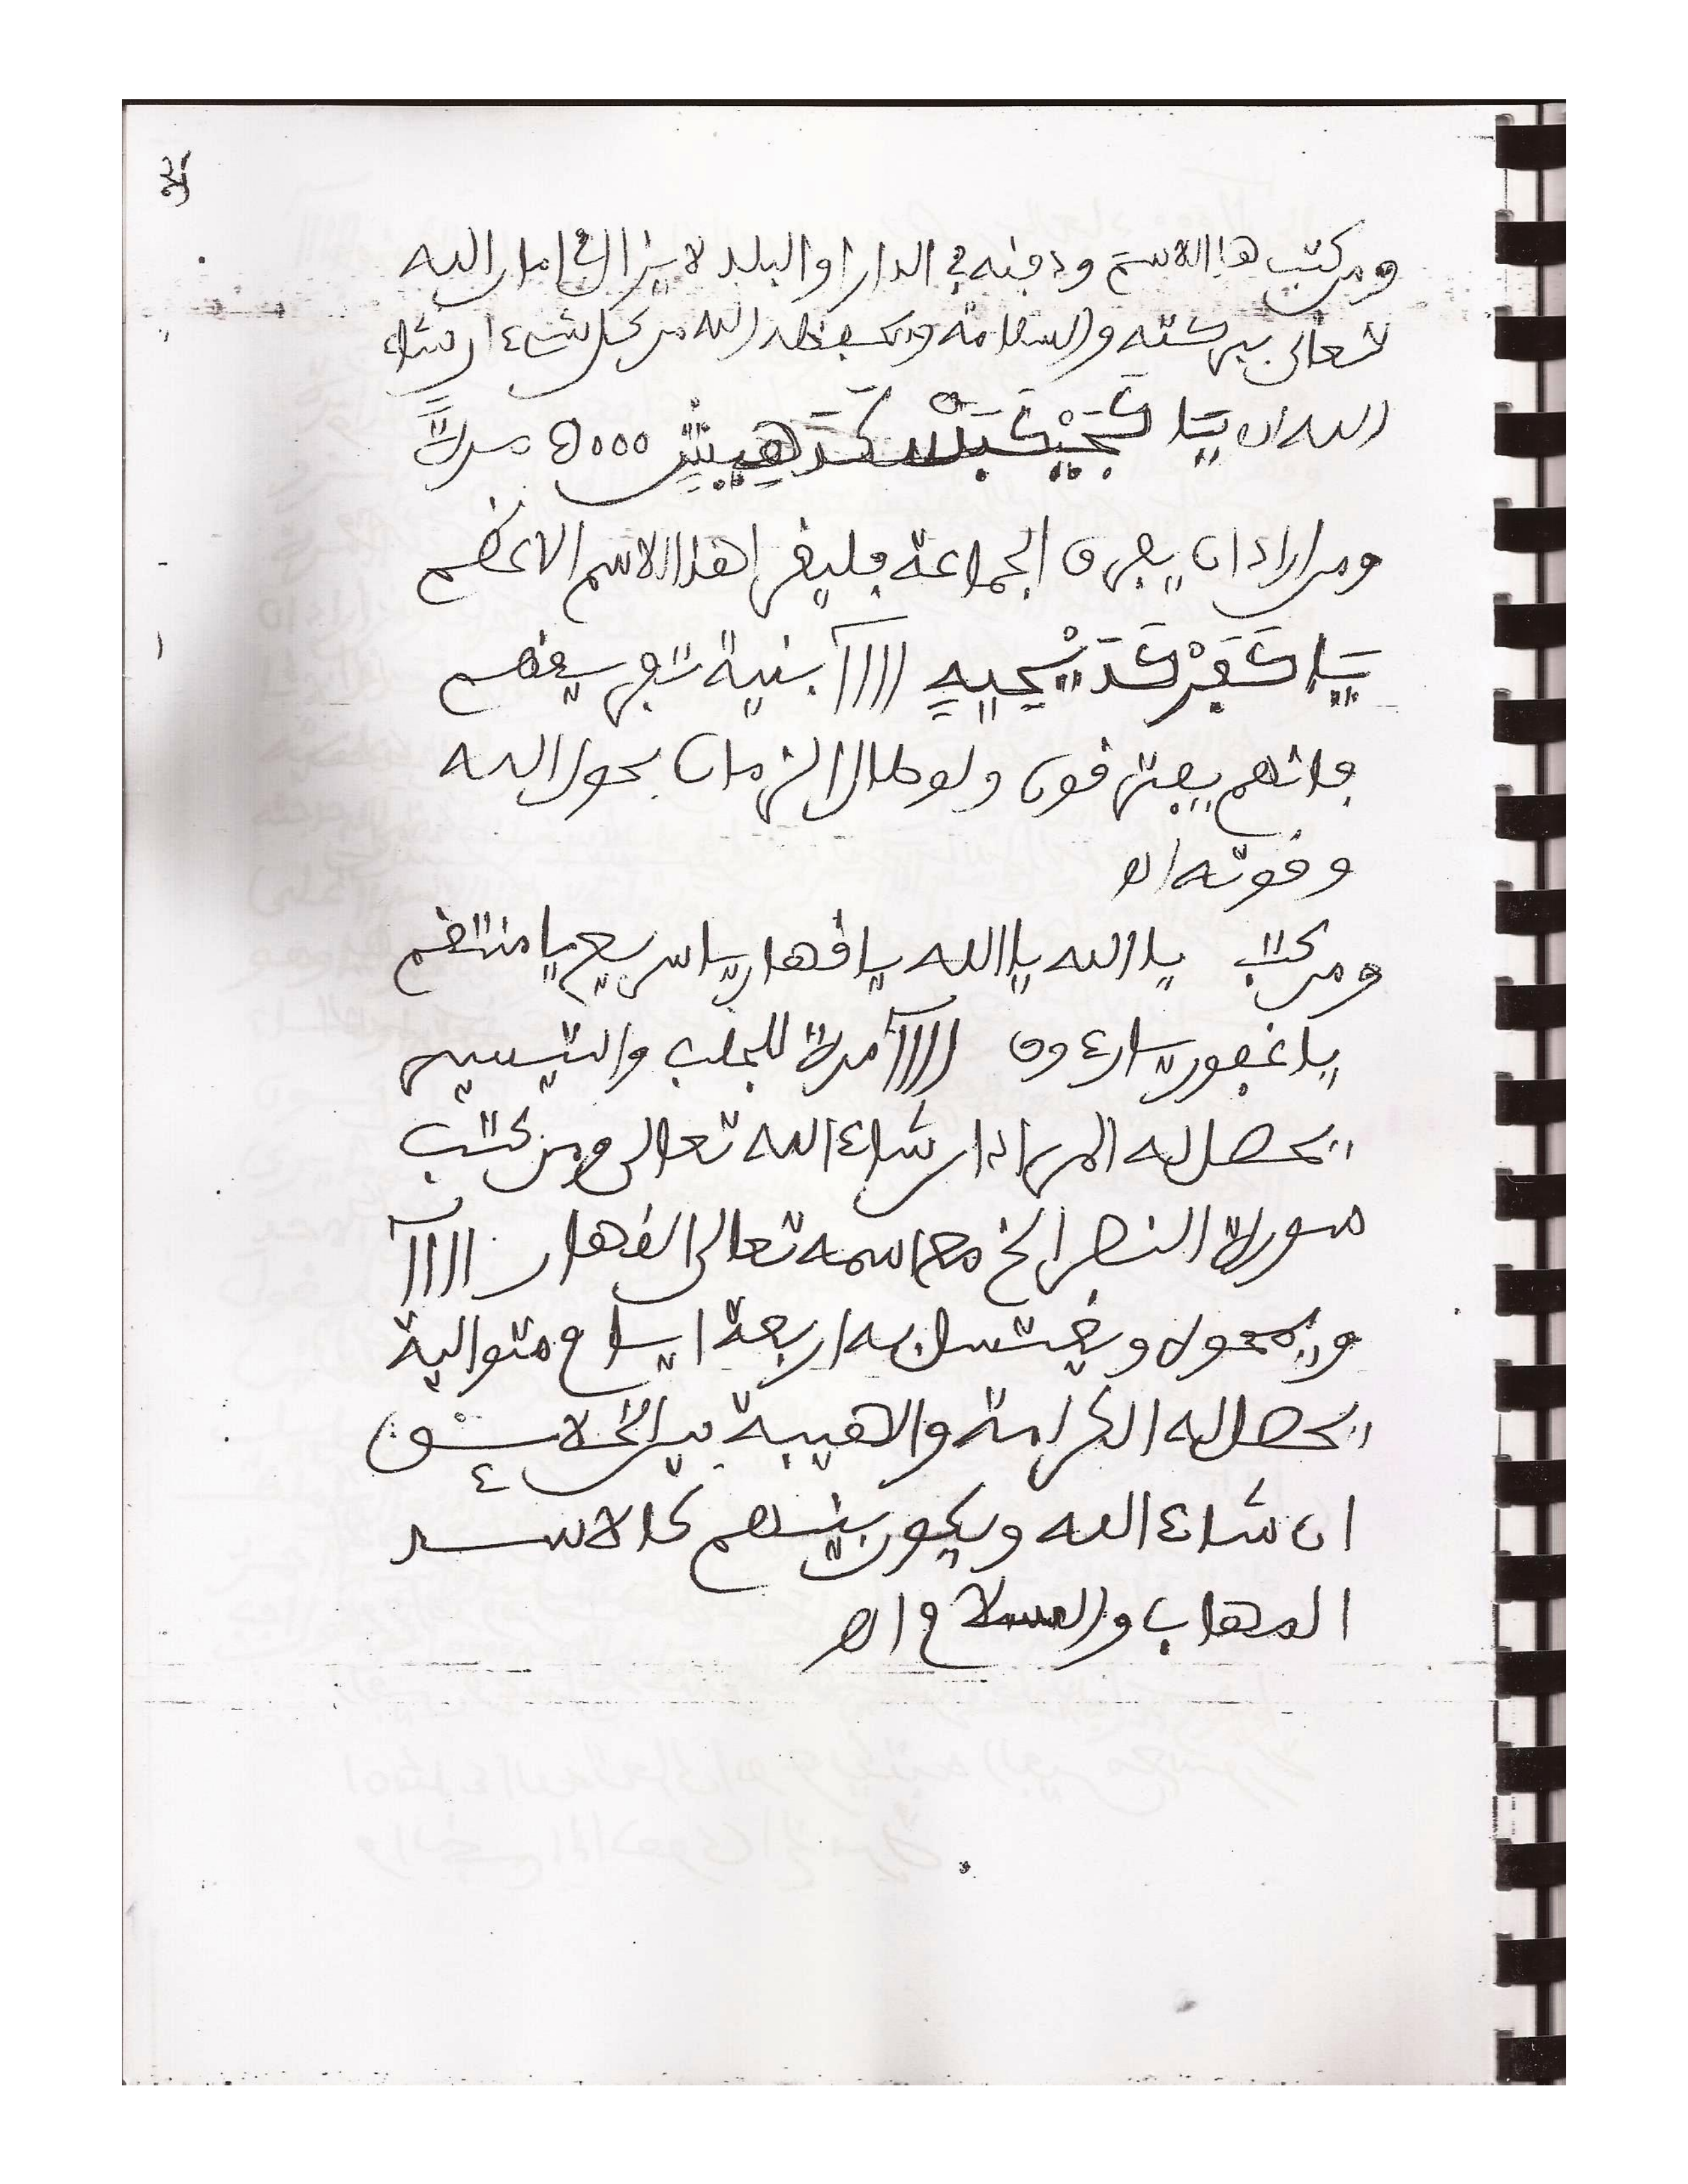 ومن كتب هذا الاسم ودفنه في الدار او البلد لا يزال في امان الله
تعالى ببركته والسلامة ويحفظه الله من كل شيء ان شاء
الله 5000 مرة
ومن اراد ان يفرق الجماعة فليقرا هذا الاسم الاعظم
بنية تفريقهم
فانهم يفترقون ولو طال الزمان بحول الله
وقوته اه
ومن كتب يا الله يا الله يا قهار يا سريع يا منتقم
يا غفور يا رءوف مرة للجلب والتيسير
يحصل له المراد ان شاء الله تعالى ومن كتب
سورة النصر الخ مع اسمه تعالى القهار
ويمحوه ويغتسل به اربعة ايام متوالية
يحصل له الكرامة والهيبة بين الخلائق
ان شاء الله ويكون بينهم كالاسد
المهاب والسلام اه